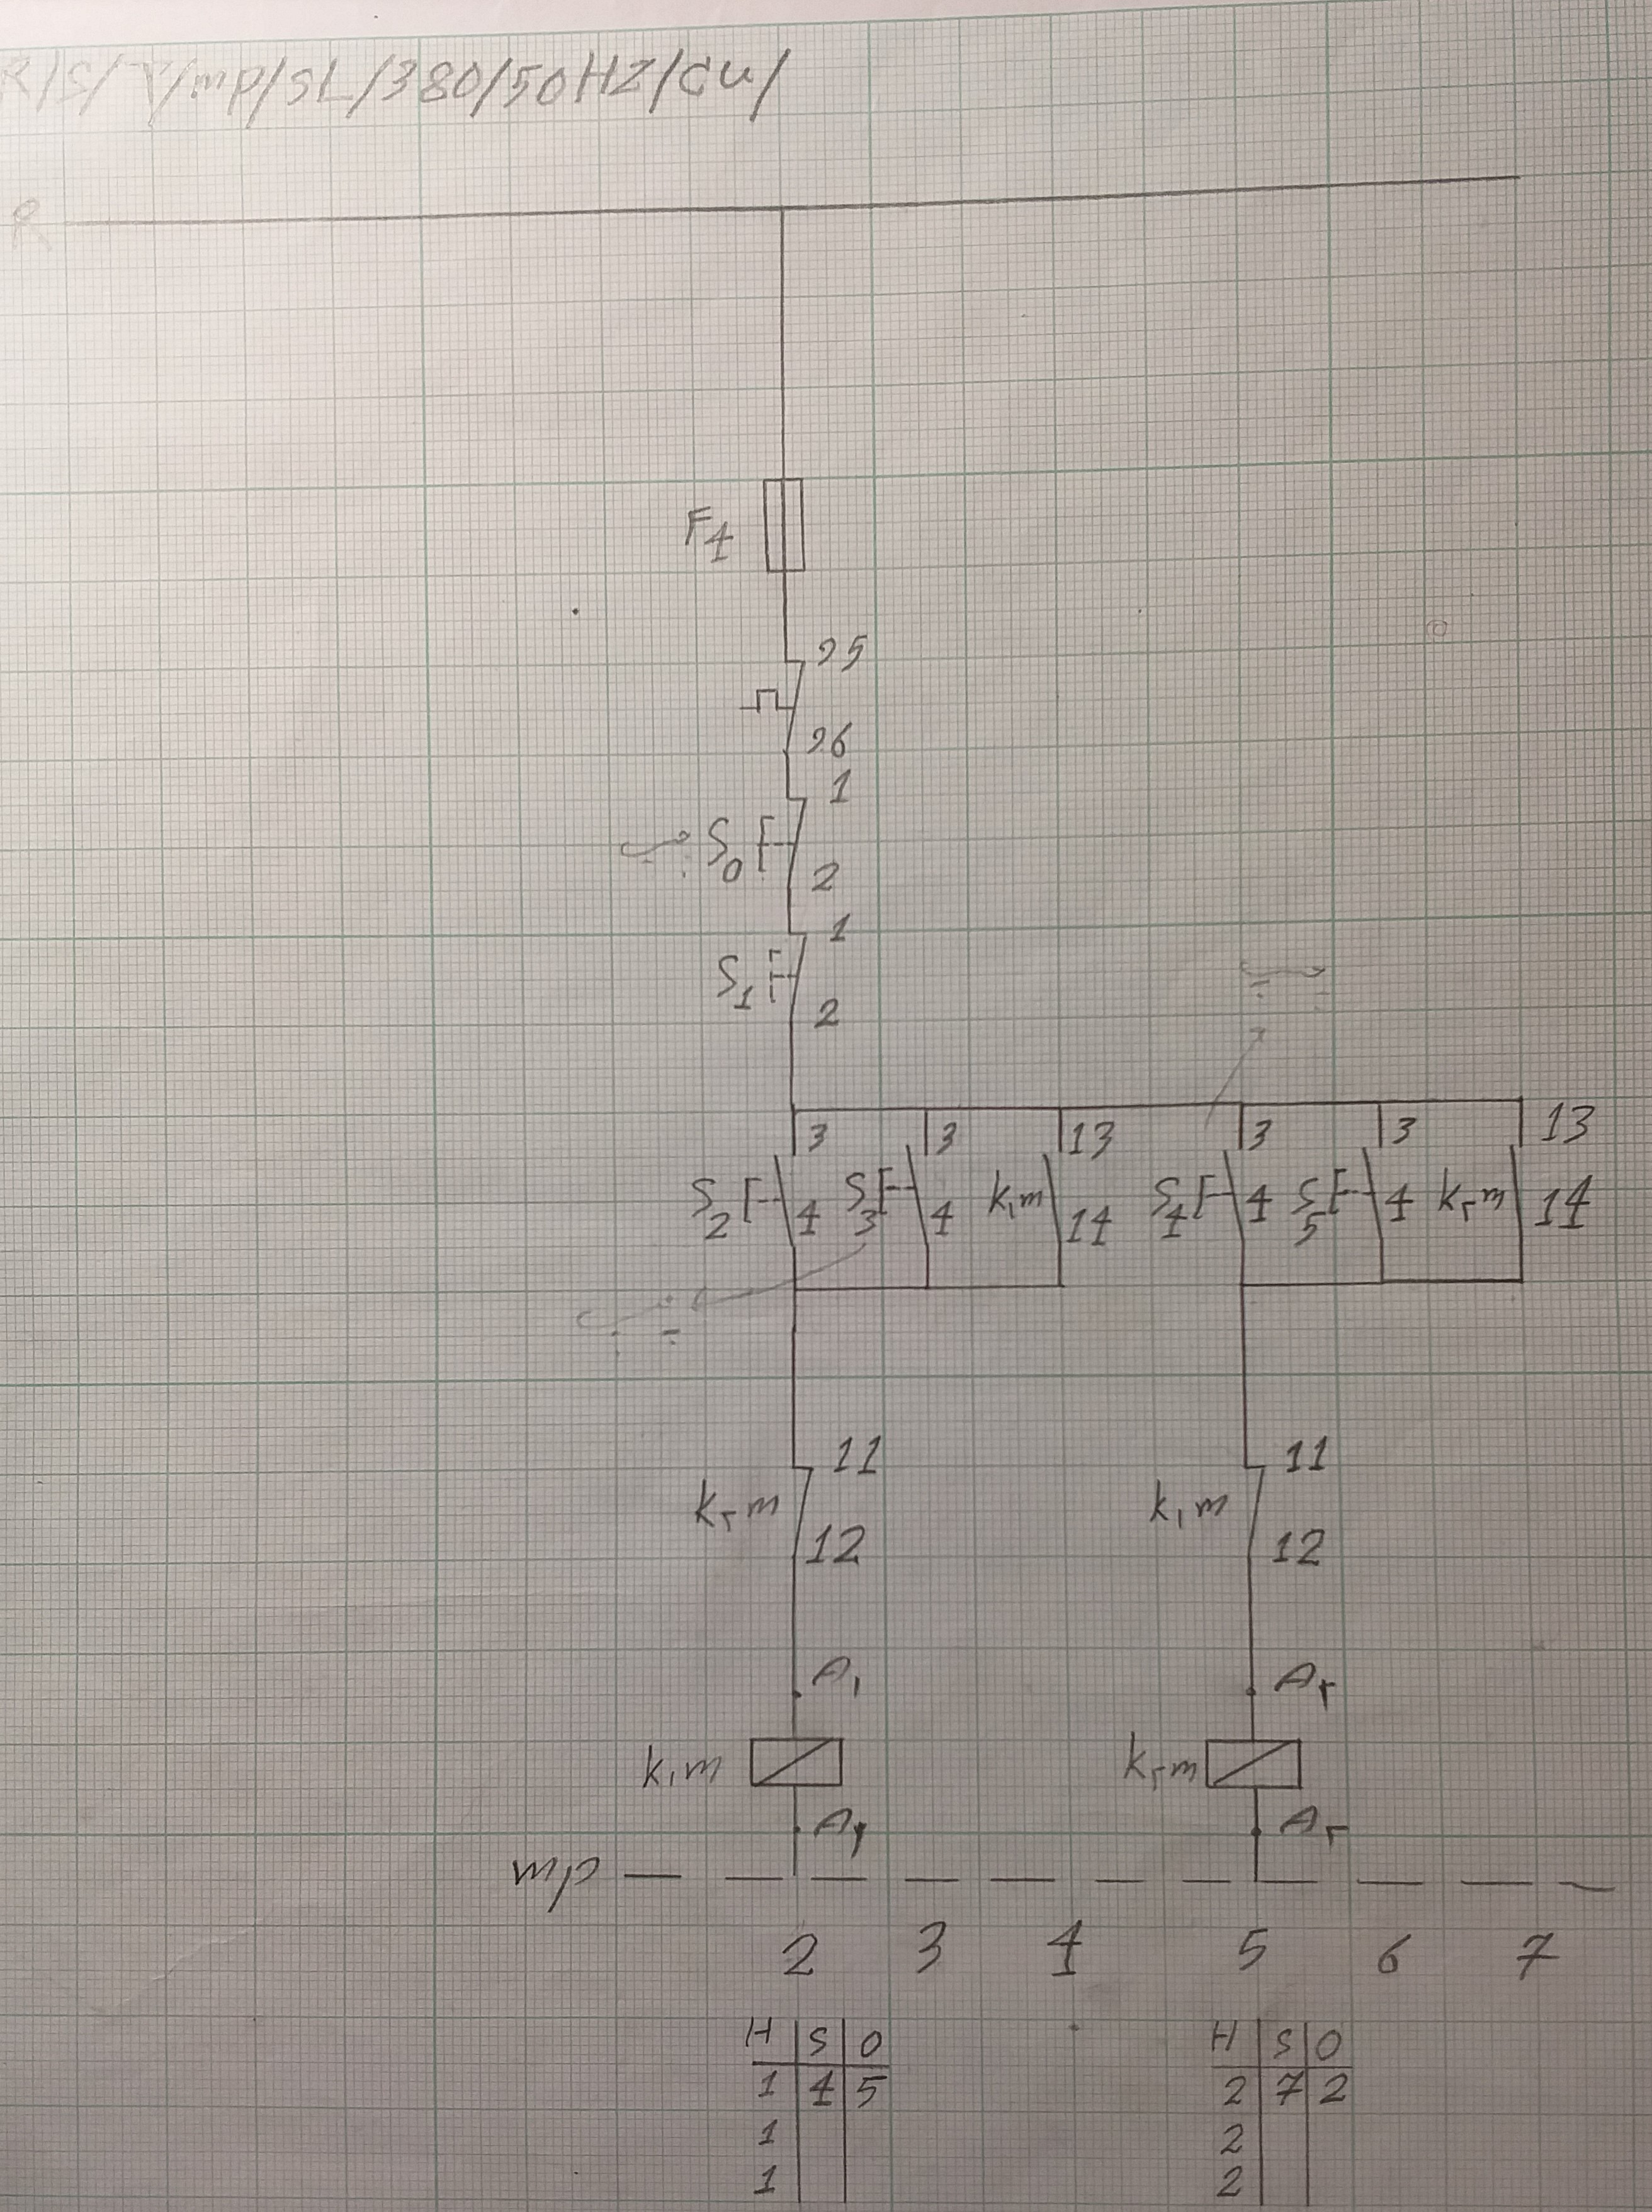 R/S/T/mp/SL/380/50HZ/cu/
R
F4
95
96
1
S0
2
1
S1
2
3 3 13 3 3 13
S2 4 S3 4 k١m 14 S4 4 S5 4 k٢m 14
11 11
k٢m k١m
12 12
A١ A٢
k١m k٢m
A٢ A٢
mp
2 3 4 5 6 7
H S O H S O
1 4 5 2 7 2
1 2
1 2